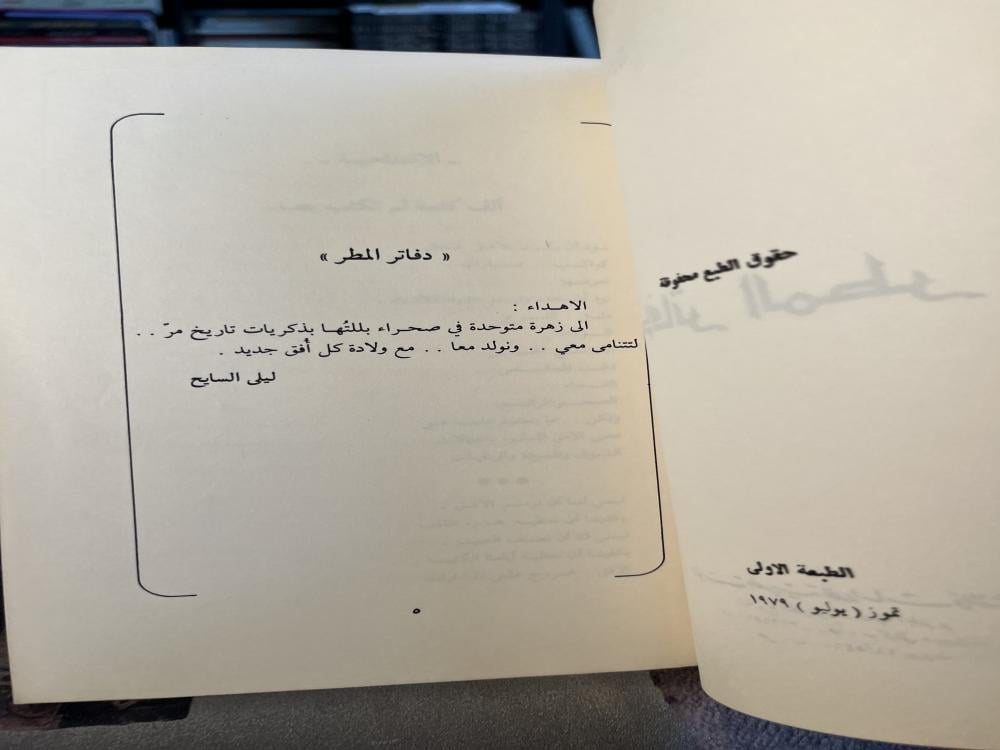 حقوق الطبع محفوظة
الطبعة الاولى
تموز ( يوليو ) ١٩٧٩
« دفاتر المطر »
الاهـداء :
الى زهرة متوحدة في صحـراء بللتُهـا بذكريات تاريخ مرّ . .
لتتنامى معي . . ونولد معا . . مع ولادة كل أفق جديد .
ليلى السايح
٥